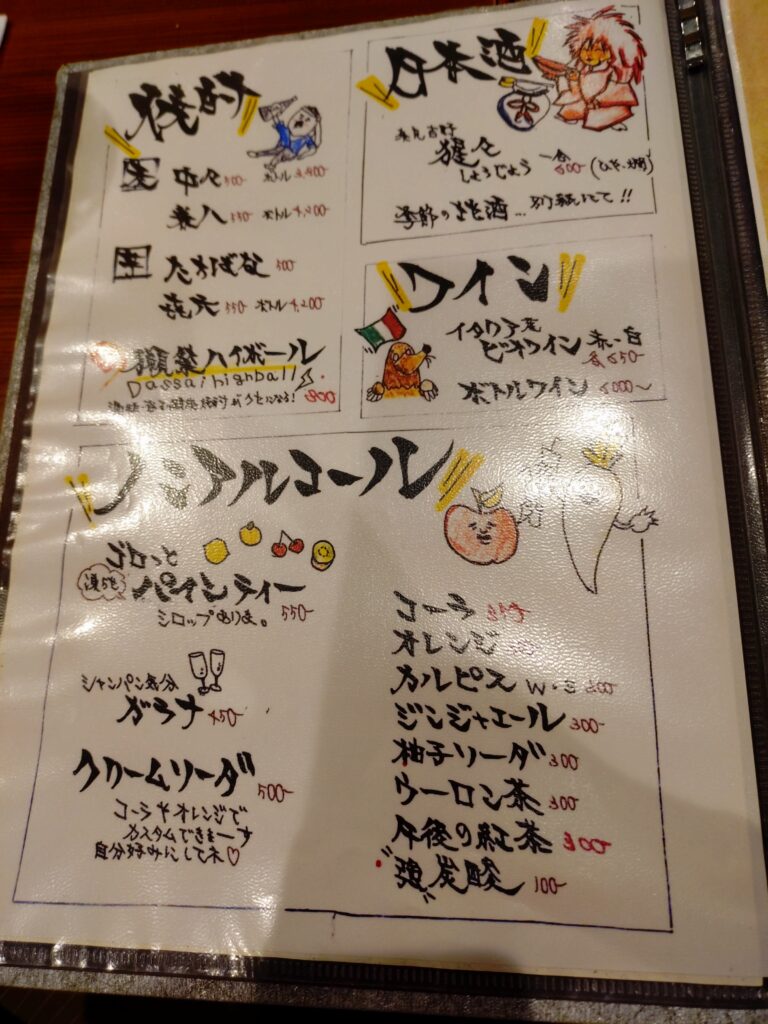 焼酎
麦 中々 500 ボトル 3,900
兼八 550 ボトル 4,200
芋 たちばな 500
㐂六 550 ボトル 4,200
獺祭ハイボール
Dassai highball
800
日本酒
猩々
しょうじょう 一合 600
季節のお酒…別紙にて!!
ワイン
イタリア産
ビオワイン 赤・白
各650
ボトルワイン
ノンアルコール
ゴロっと
漬ける パインティー
シロップあり〼。 550-
シャンパン気分
ガラナ 450-
クリームソーダ 500-
コーラやオレンジで
カスタムできまーす
自分好みにしてネ♡
コーラ
オレンジ
カルピス W・S 300-
ジンジャエール 300-
柚子ソーダ 300
ウーロン茶 300
午後の紅茶 300
強炭酸 100-